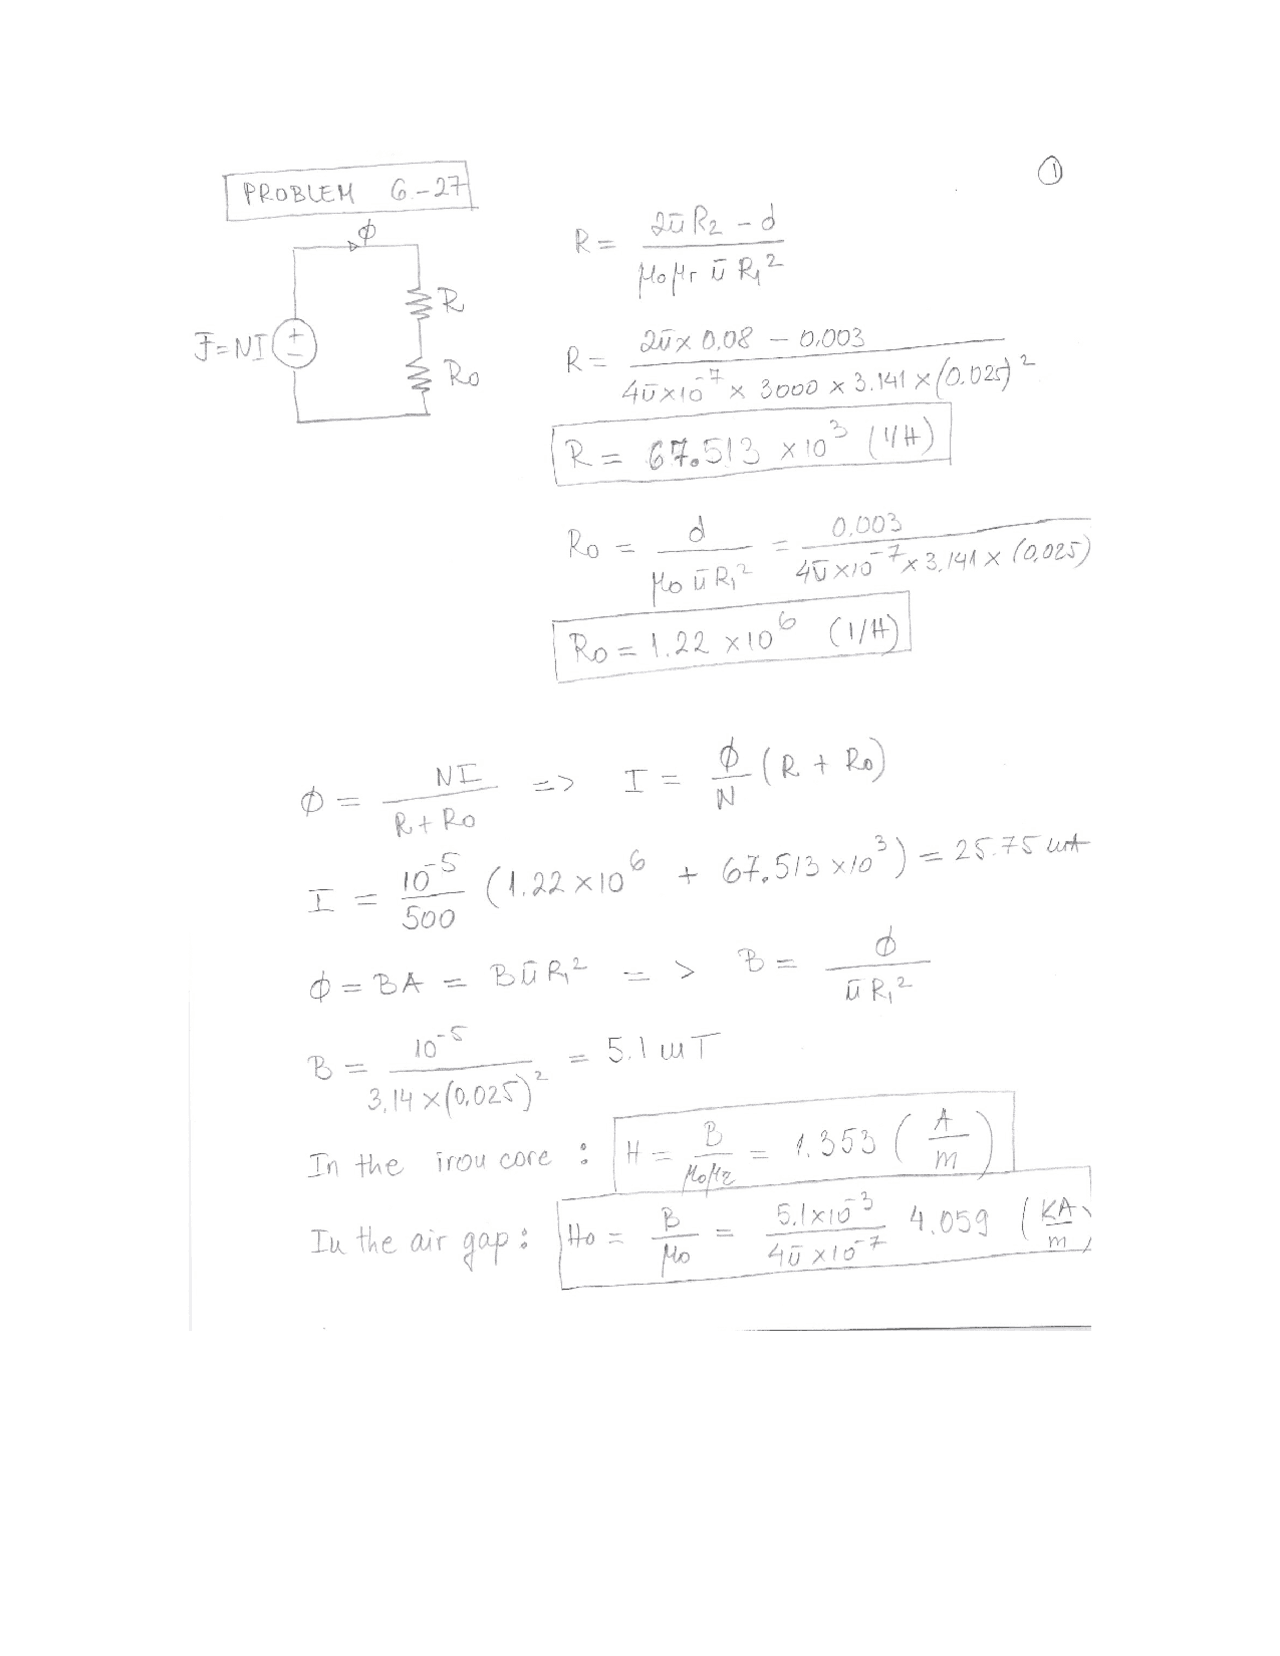 ①
PROBLEM 6-27
ϕ
R
F=NI
+
−
R₀
R = (2πR₂ − d) / (μ₀μr π R₁²)
R = (2π × 0.08 − 0.003) / (4π×10⁻⁷ × 3000 × 3.141 × (0.025)²)
R = 67.513 ×10³ (1/H)
R₀ = d / (μ₀ π R₁²) = 0.003 / (4π×10⁻⁷ × 3.141 × (0,025)
R₀ = 1.22 ×10⁶ (1/H)
ϕ = NI / (R + R₀) => I = ϕ/N (R + R₀)
I = 10⁻⁵/500 (1.22 ×10⁶ + 67.513 ×10³) = 25.75 mA
ϕ = BA = BπR₁² => B = ϕ / (π R₁²)
B = 10⁻⁵ / (3,14 × (0,025)²) = 5.1 mT
In the iron core : H = B / (μ₀μr) = 1.353 (A/m)
In the air gap : H₀ = B/μ₀ = 5.1×10⁻³ / (4π ×10⁻⁷) 4.059 (KA/m)